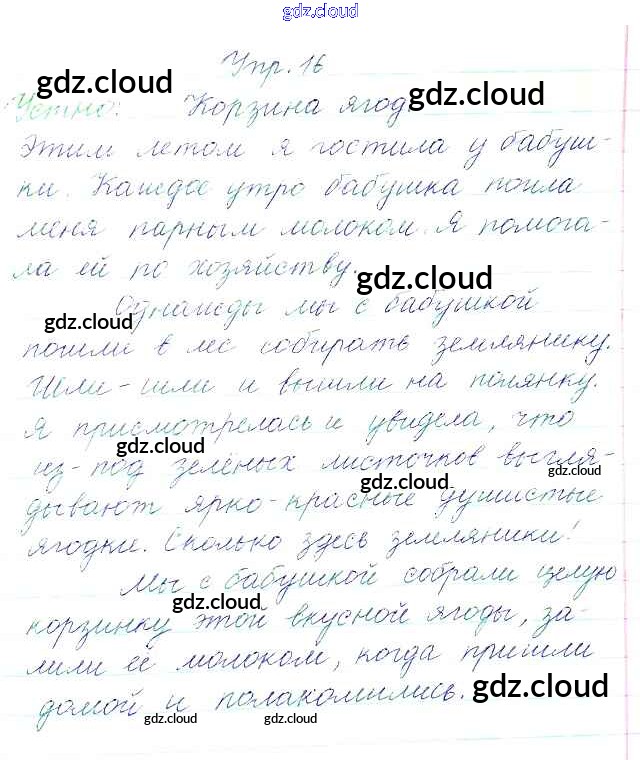 gdz.cloud
Упр. 16
gdz.cloud
Устно: Корзина ягод
gdz.cloud
Этим летом я гостила у бабуш-
ки. Каждое утро бабушка поила
меня парным молоком. Я помога-
ла ей по хозяйству.
gdz.cloud
Однажды мы с бабушкой
gdz.cloud
пошли в лес собирать землянику.
Шли-шли и вышли на полянку.
Я присмотрелась и увидела, что
gdz.cloud
из-под зелёных листочков выгля-
gdz.cloud
gdz.cloud
дывают ярко-красные душистые
ягодки. Сколько здесь земляники!
Мы с бабушкой собрали целую
gdz.cloud
корзинку этой вкусной ягоды, за-
лили её молоком, когда пришли
gdz.cloud
домой и полакомились.
gdz.cloud
gdz.cloud